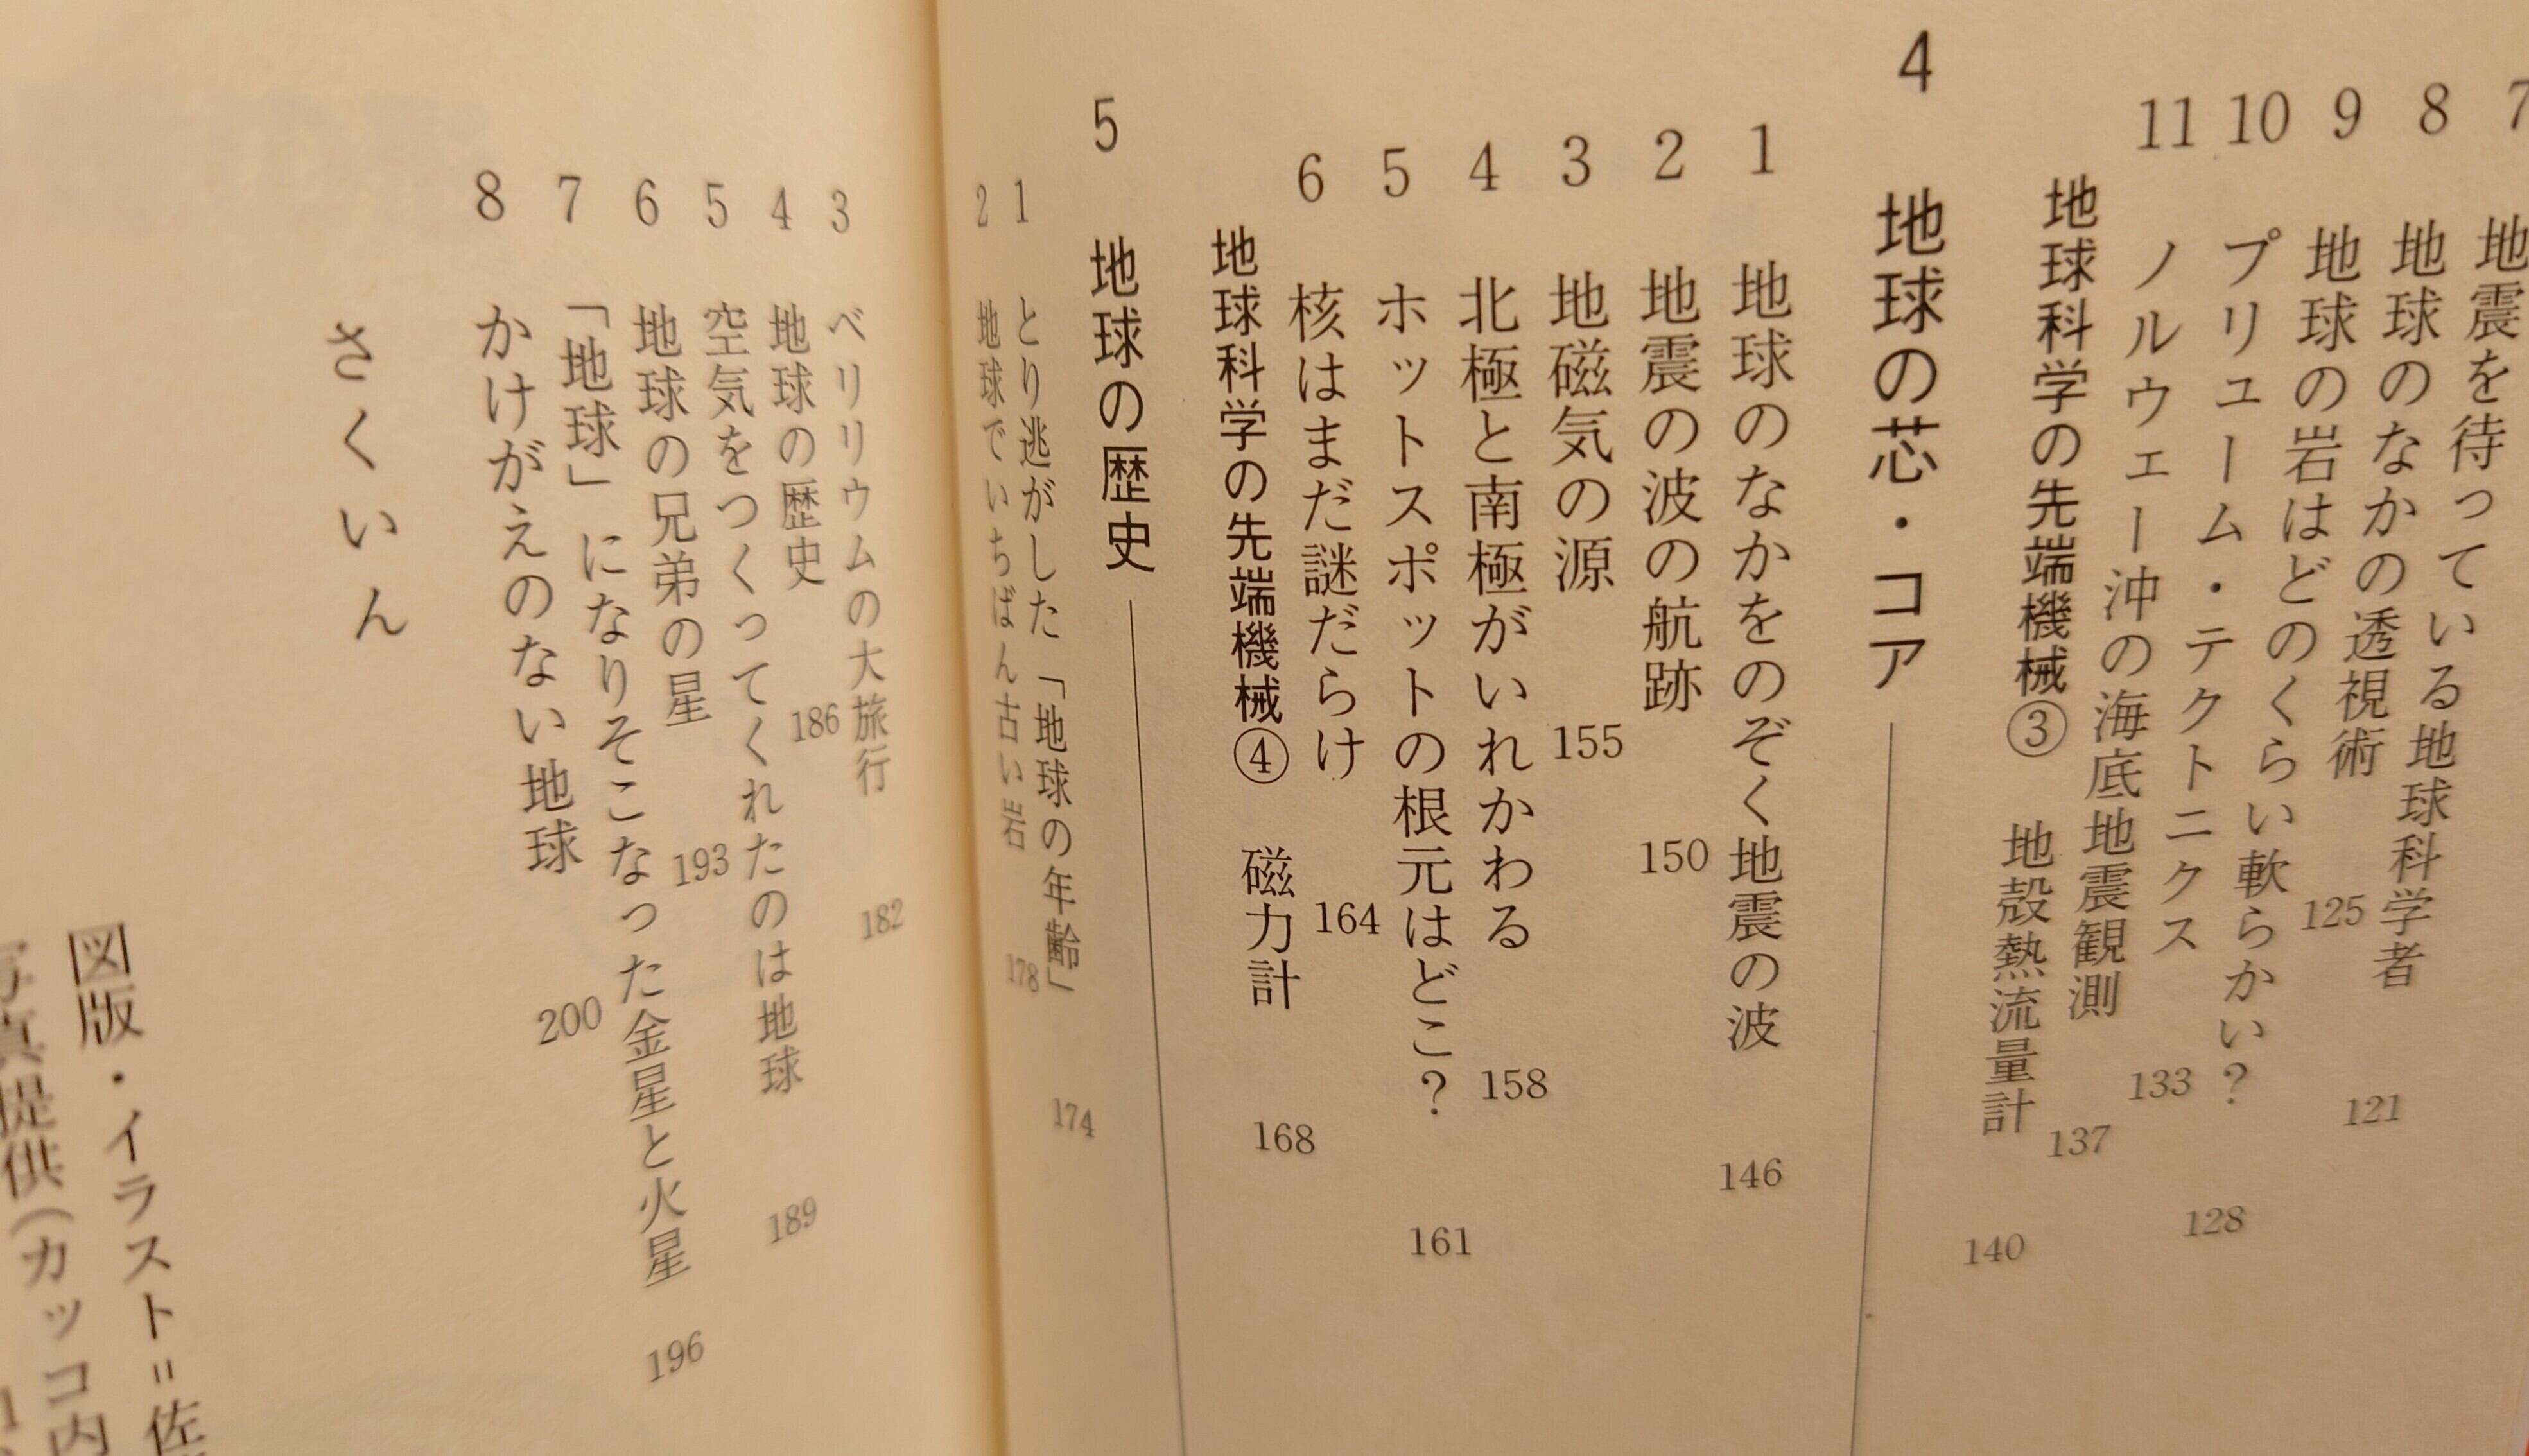 7 地震を待っている地球科学者 121
8 地球のなかの透視術 125
9 地球の岩はどのくらい軟らかい? 128
10 プリューム・テクトニクス 133
11 ノルウェー沖の海底地震観測 137
地球科学の先端機械③ 地殻熱流量計 140
4 地球の芯・コア
1 地球のなかをのぞく地震の波 146
2 地震の波の航跡 150
3 地磁気の源 155
4 北極と南極がいれかわる 158
5 ホットスポットの根元はどこ? 161
6 核はまだ謎だらけ 164
地球科学の先端機械④ 磁力計 168
5 地球の歴史
1 とり逃がした「地球の年齢」 174
2 地球でいちばん古い岩 178
3 ベリリウムの大旅行 182
4 地球の歴史 186
5 空気をつくってくれたのは地球 189
6 地球の兄弟の星 193
7 「地球」になりそこなった金星と火星 196
8 かけがえのない地球 200
さくいん
図版・イラスト=佐
写真提供(カッコ内